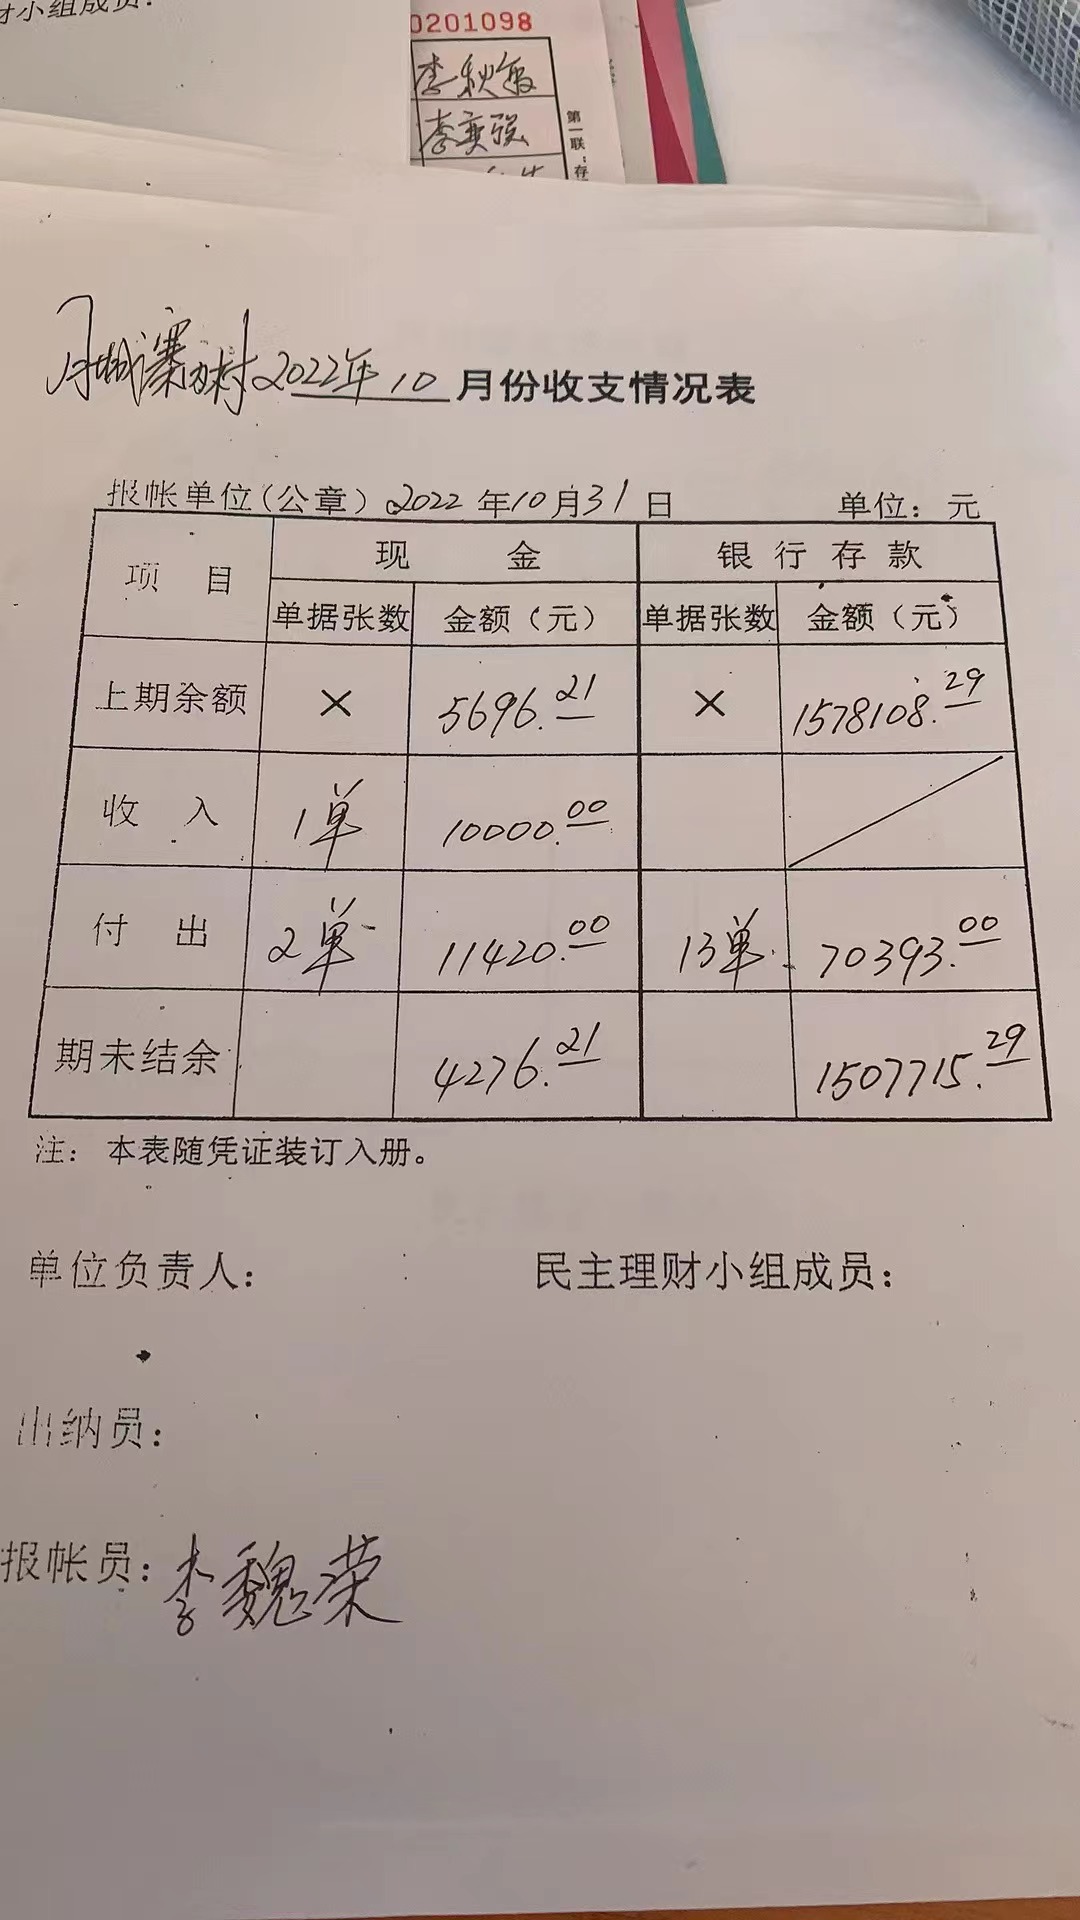 财小组成员:
0201098
李秋敏
李奕强
第一联:存
月城寨内村2022年10月份收支情况表
报帐单位(公章) 2022年10月31日 单位: 元
项目 现金 银行存款
单据张数 金额(元) 单据张数 金额(元)
上期余额 × 5696.21 × 1578108.29
收入 1单 10000.00
付出 2单 11420.00 13单 70393.00
期未结余 4276.21 1507715.29
注: 本表随凭证装订入册。
单位负责人: 民主理财小组成员:
出纳员:
报帐员: 李魏荣